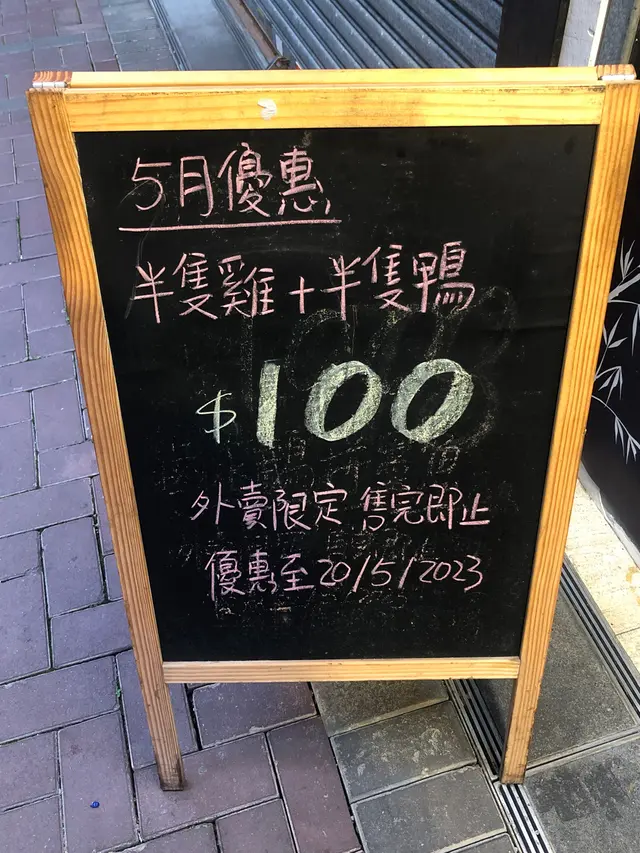 5月優惠
半隻雞+半隻鴨
$100
外賣限定 售完即止
優惠至20/5/2023